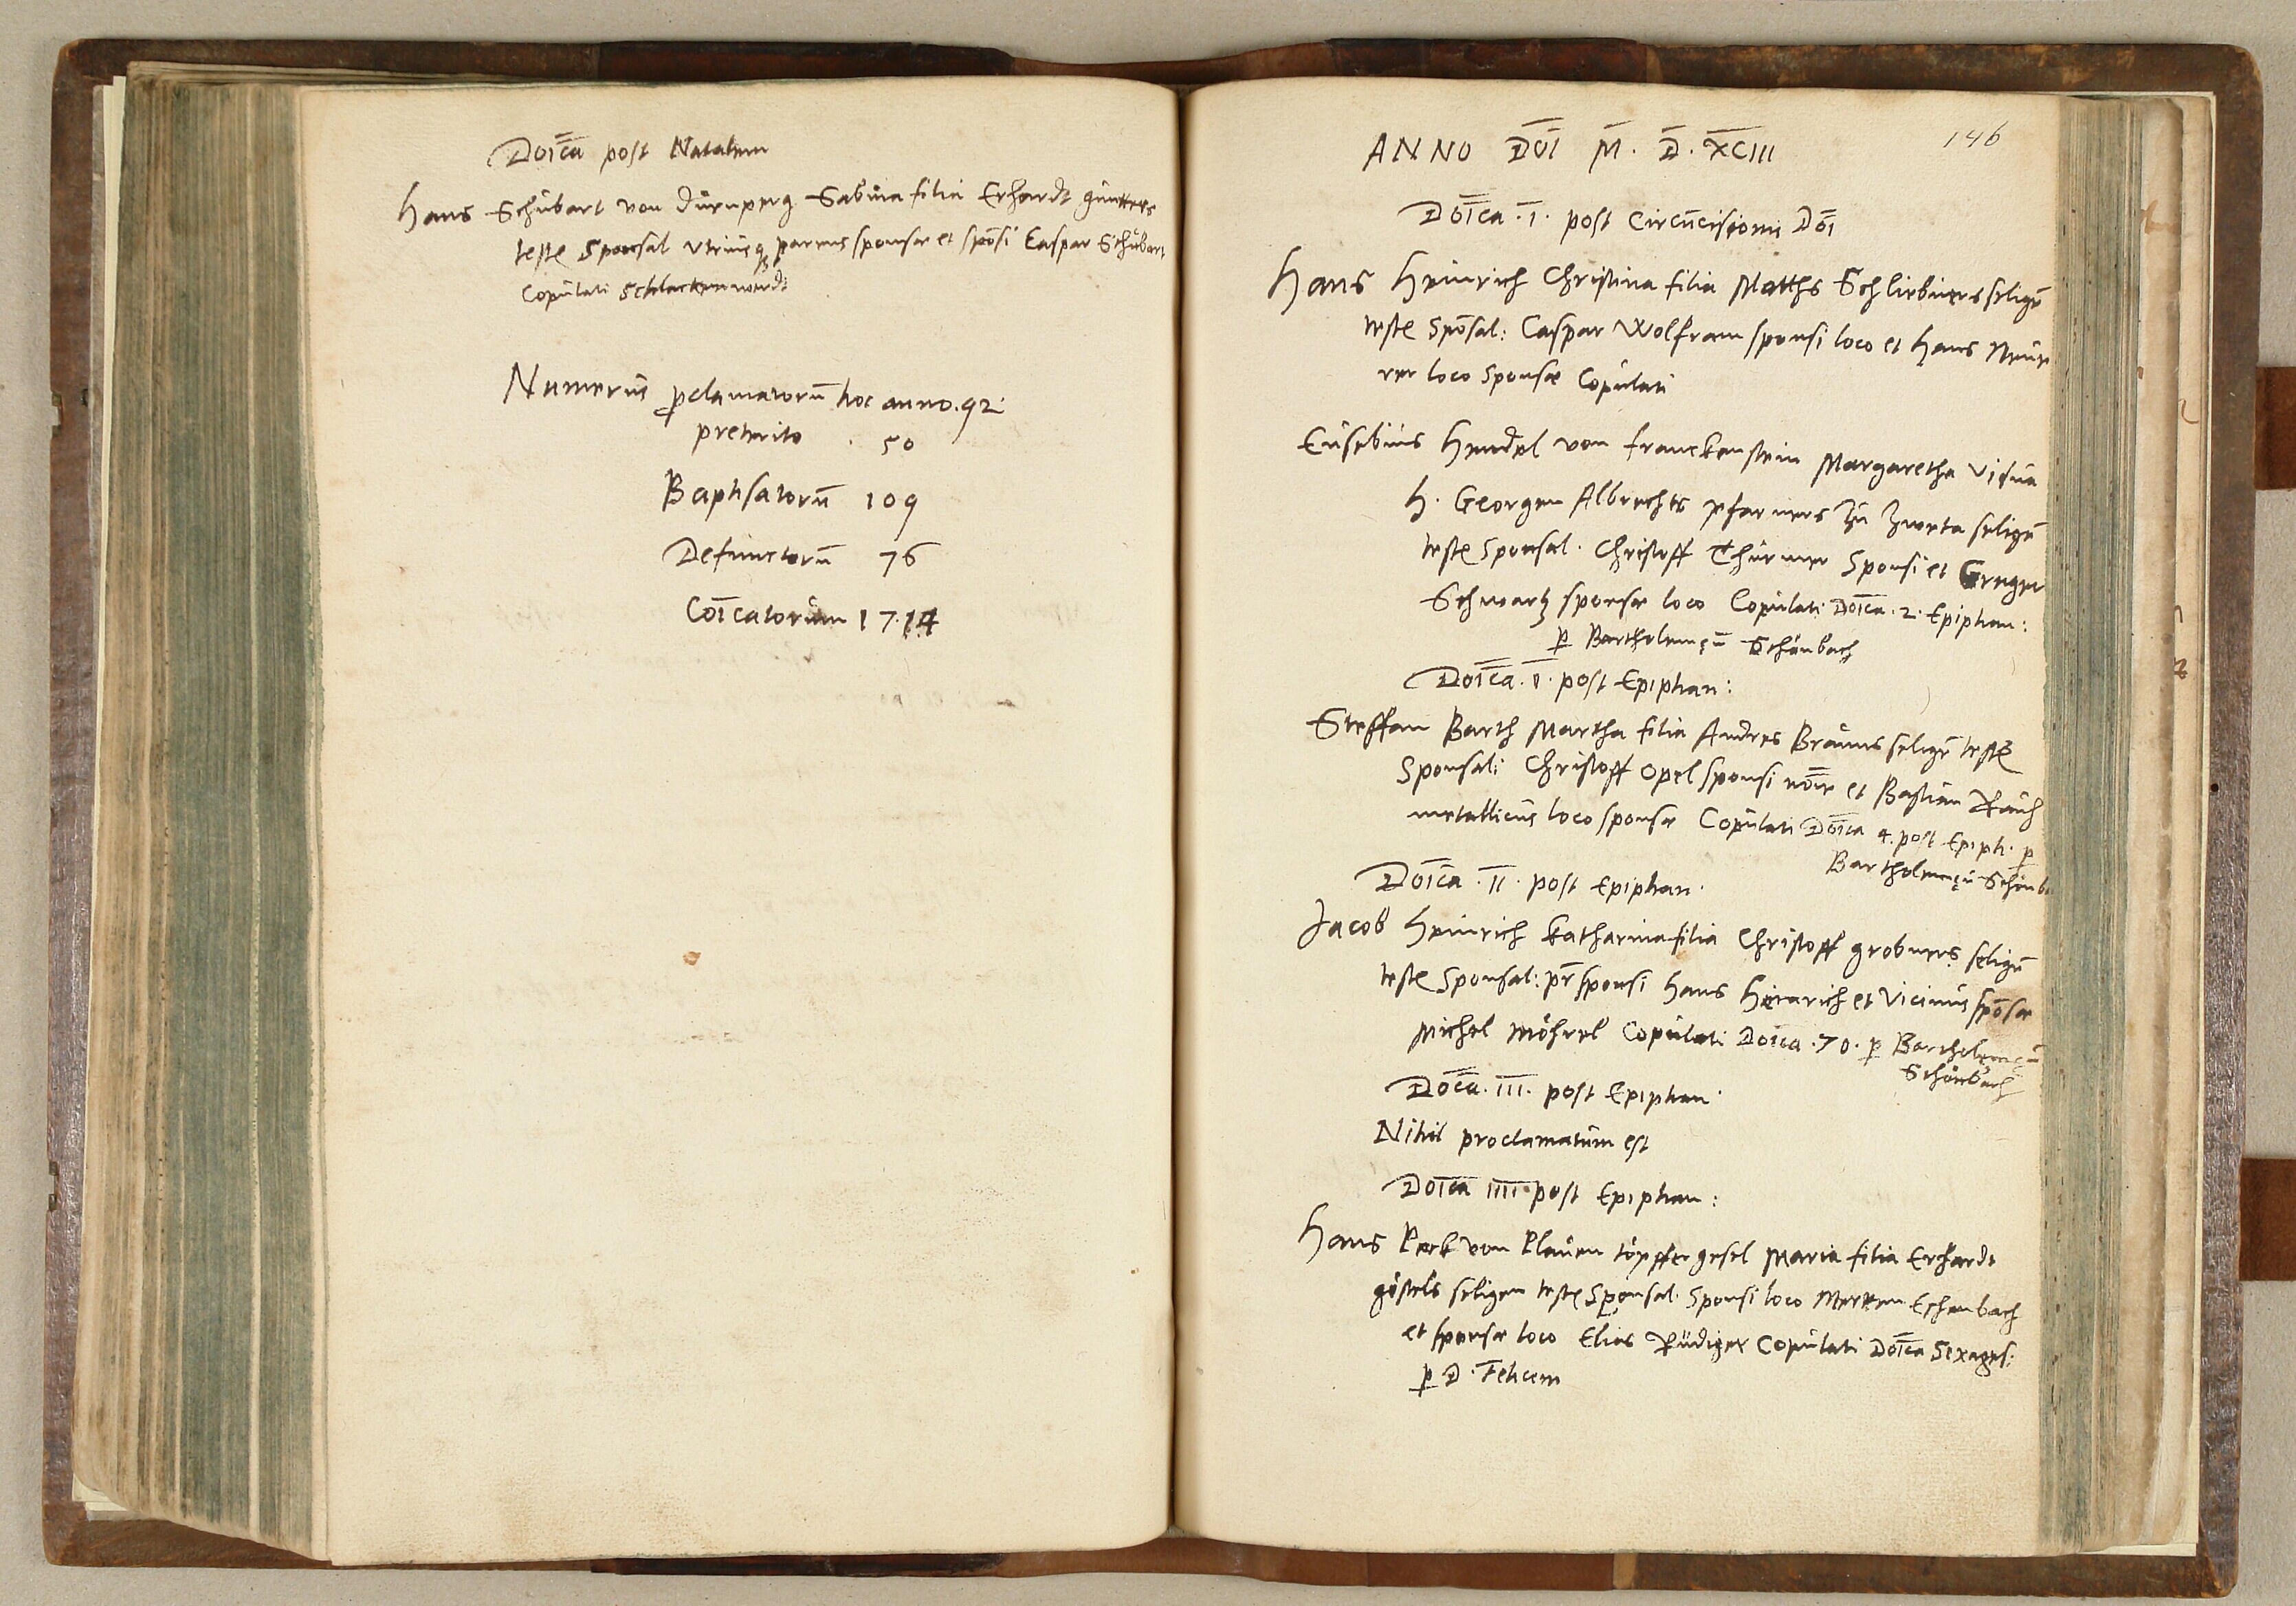 Doica post Natalem
Hans Schubart von dürnperg Sabina filia Erhardt günters
teste Sponsal utriusq parens sponsæ et sposi Caspar Schubart
Copulati Schlackenwerdt
Numerus pclamatoru hoc anno . 92
preterito . 50
Baptisatoru 109
Defunctoru 76
Coicatorum 1714
146
ANNO DOI M. D. XCIII
Doica . I . post Circucisionis Doi
Hans Heinrich Christina filia Matths Schliebners selige
teste Sposal: Caspar Wolfram sponsi loco et Hans
rer loco Sponsæ Copulati
Eusebius Hendel von Franckenstein Margaretha Vidua
H. Georgen Albrechts pfarners zu Zweta selige
teste Sponsal. Christoff Thürmer Sponsi et Greger
Schwartz sponsæ loco Copulati Doica . 2 . Epiphan:
p Bartholomeu Schönbach
Doica . I . post Epiphan:
Steffan Barth Martha filia Andres Brauns selige teste
Sponsal: Christoff Opel sponsi noie et Bastian Rauch
metallicus loco sponsæ Copulati Doica 4. post Epiph. p
Bartholomeu Schönb
Doica . II . post Epiphan.
Jacob Heinrich Katharina filia Christoff grobners selige
teste Sponsal: pr sponsi Hans Heinrich et Vicinus sposæ
Michel Möhrel Copulati Doica . 70 . p Bartholomeu
Schönbach
Doca . III . post Epiphan.
Nihil proclamatum est
Doica IIII post Epiphan:
Hans Peck von Plauen töpffer gesel Maria filia Erhardt
göstels seligen teste Sponsal. Sponsi loco Merten Eschenbach
et sponsæ loco Elias Rüdiger Copulati Doica Sexages:
p D. Felicem